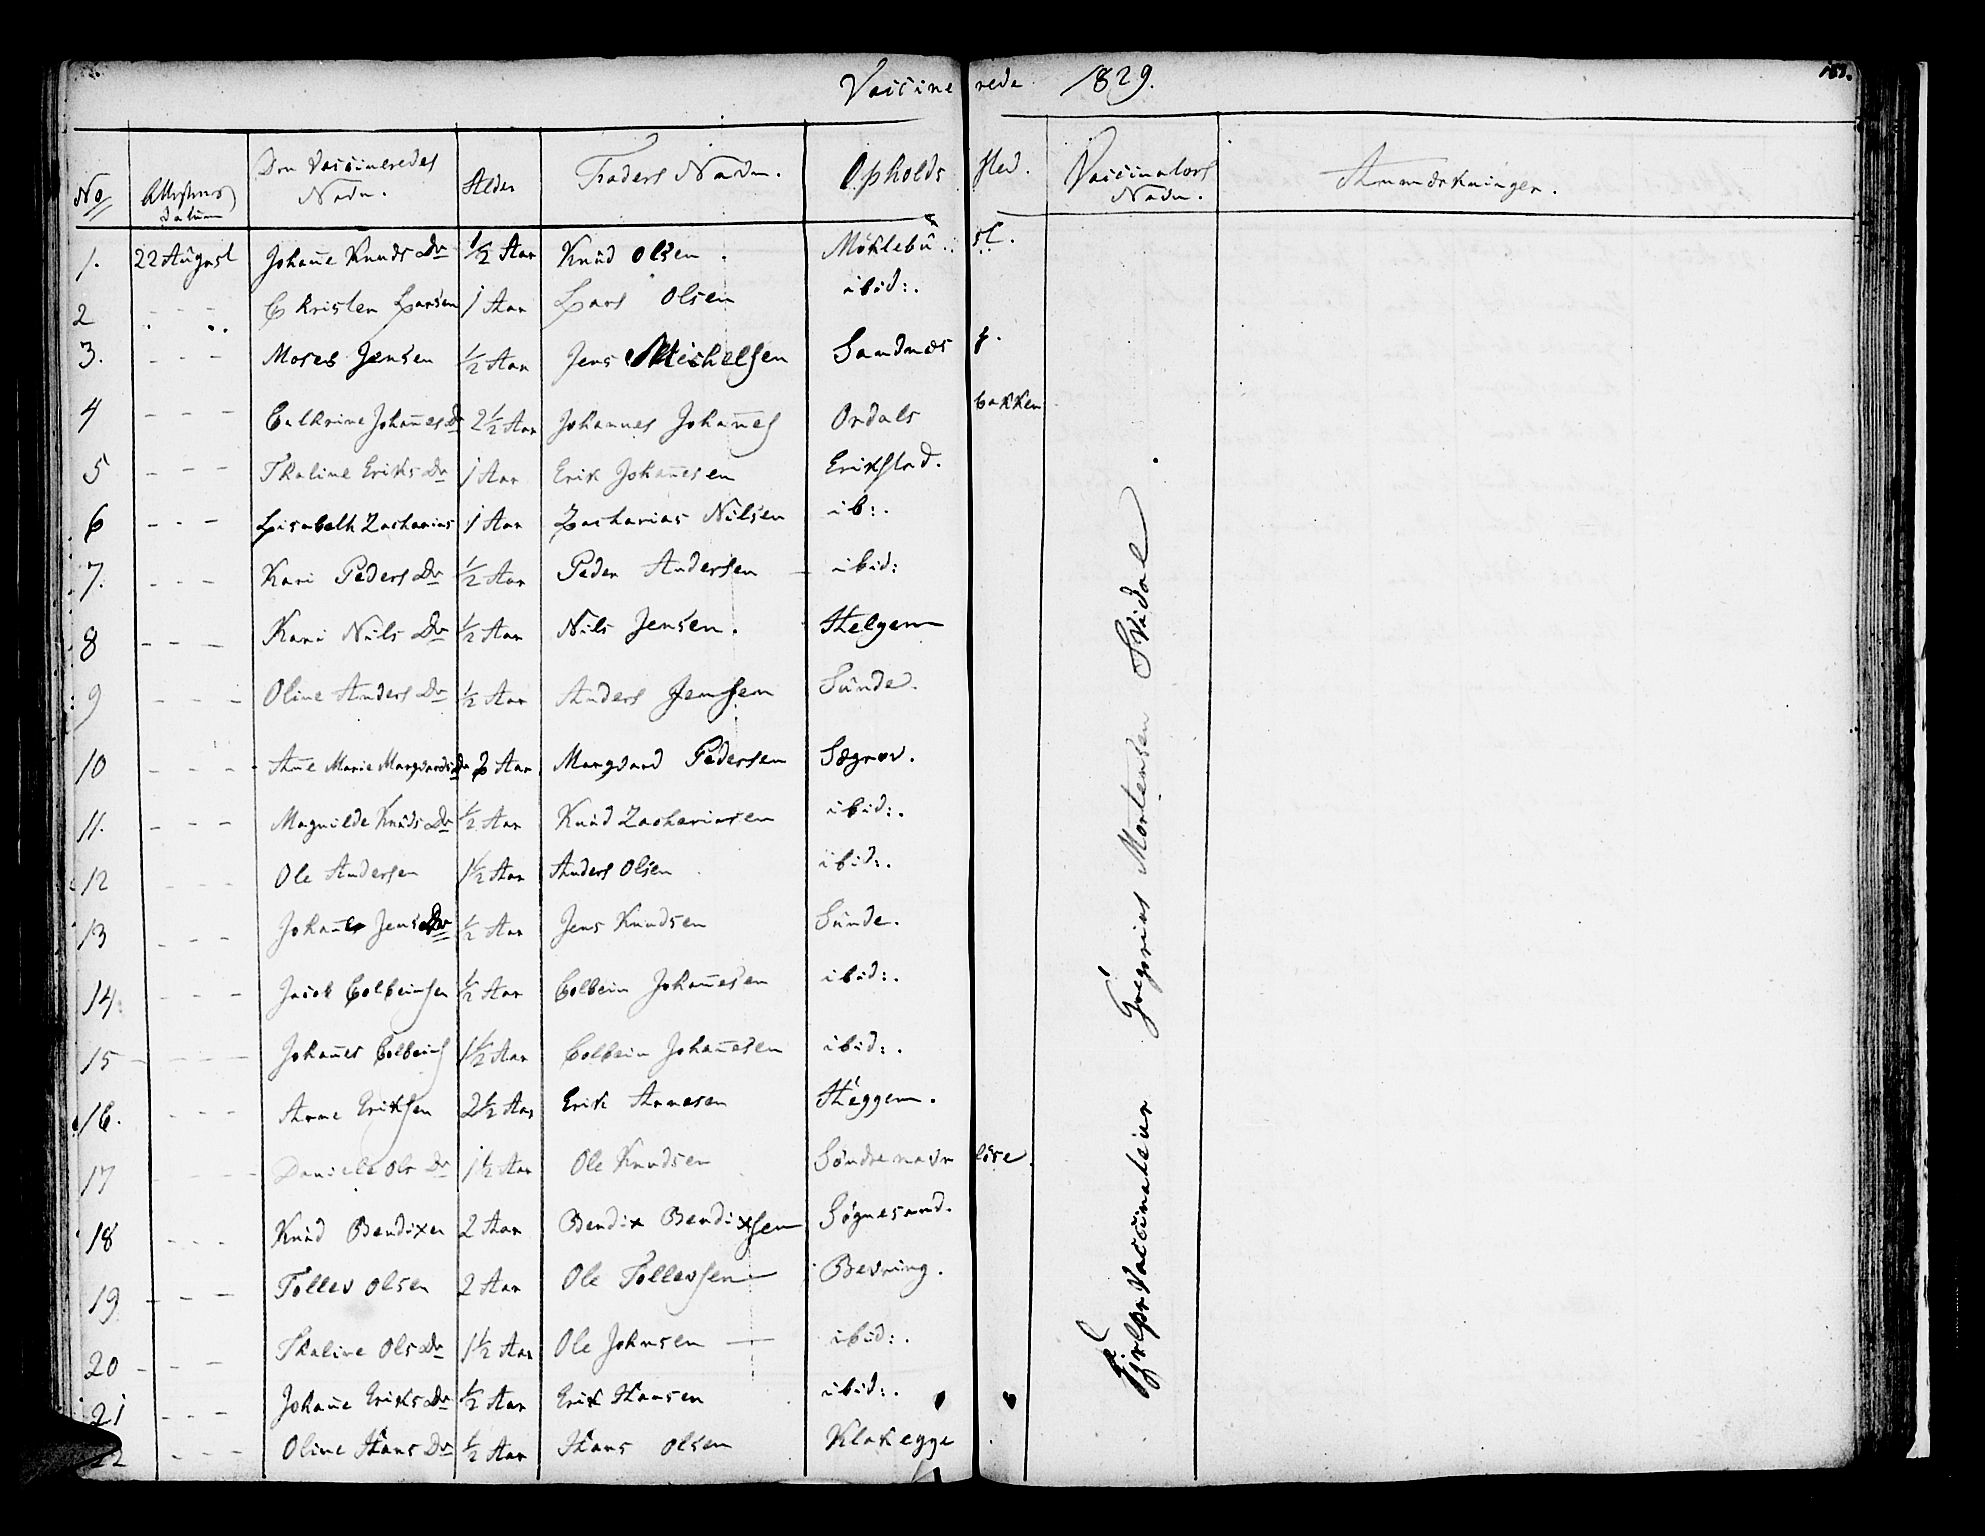 Vaccinerede 1829.
181.
No Attestens Datum Den Vaccineredes Navn. Alder Faders Navn. Opholds sted. Vaccinators Navn. Anmærkninger.
1. 22 August Johañe Knuds Dr ½ Aar Knud Olsen. Møklebu st.
2 - - - Christen Larsen 1 Aar Lars Olsen ibid:.
3. - - - Moses Jensen ½ Aar Jens Michelsen Sandnæs
4 - - - Cathrine Johañes Dr 2½ Aar Johannes Johañes Ordals bakken
5 - - - Thaline Eriks Dr 1 Aar Erik Johañesen Erikstad.
6 - - - Lisabeth Zacharias 1 Aar Zacharias Nilsen ib:.
7. - - - Kari Peders Dr ½ Aar Peder Andersen ibid:
8 - - - Kari Nils Dr ½ Aar Nils Jensen. Helgem
9 - - - Oline Anders Dr ½ Aar Anders Jensen Sunde.
10 - - - Añe Marie Marqvards Dr 2 Aar Marqvard Pedersen Sægrov.
11. - - - Magnilde Knuds Dr ½ Aar Knud Zachariasen ibid:.
12 - - - Ole Andersen 1½ Aar Anders Olsen ibid:.
13 - - - Johañe Jens Dr ½ Aar Jens Knudsen Sunde.
14. - - - Jacob Colbeinsen ½ Aar Colbein Johañesen ibid:.
15 - - - Johañes Colbeins 1½ Aar Colbein Johañesen ibid:.
16. - - - Arne Eriksen 2½ Aar Erik Arnesen Heggem.
17 - - - Daniele Ols Dr 1½ Aar Ole Knudsen Søndrenavr løse.
18 - - - Knud Bendixen 2 Aar Bendix Bendixsen Søgnesand.
19 - - - Tollev Olsen 2 Aar Ole Tollevsen Bevring.
20 - - - Thaline Ols Dr 1½ Aar Ole Johnsen ibid:.
21 - - - Johañe Eriks Dr ½ Aar Erik Hansen ibid:.
22 - - - Oline Hans Dr ½ Aar Hans Olsen Klakegge
Hjelpe Vaccinateur Gregorius Mortensen Svidal